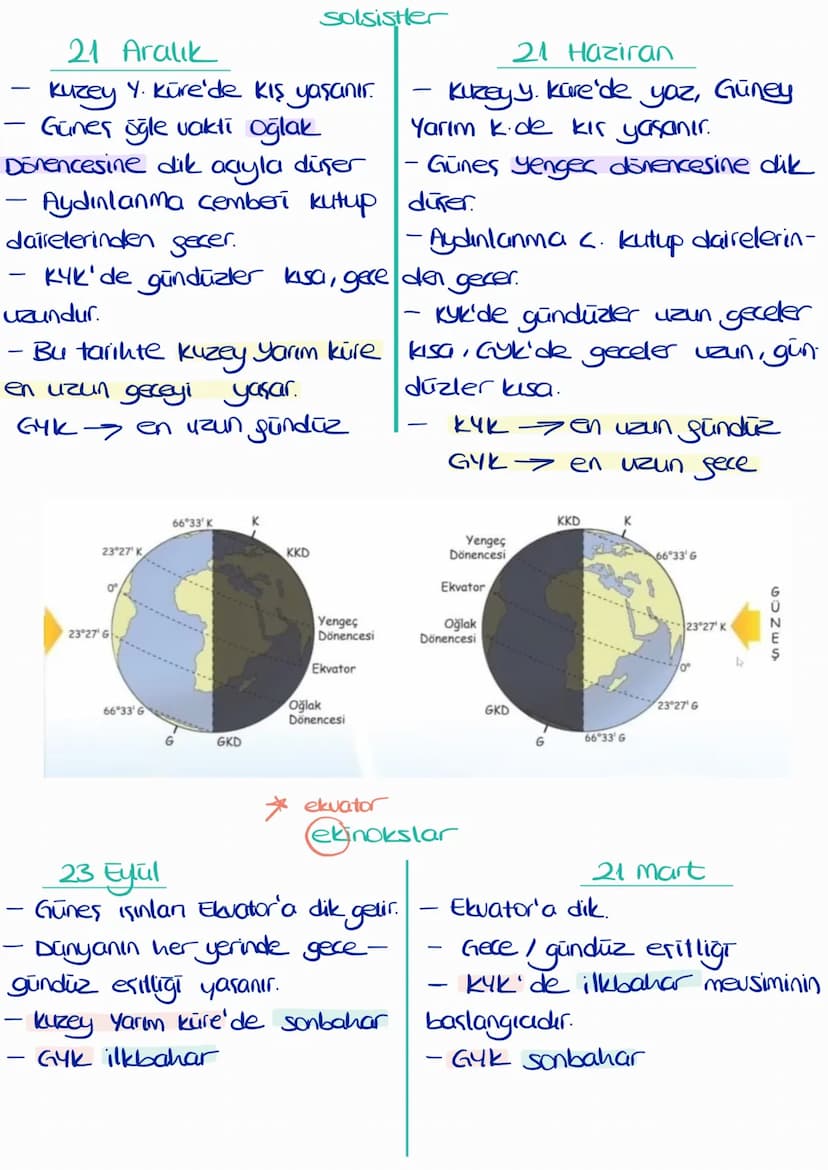 Solsistler
21 Aralık
- Kuzey Y. Küre'de Kış yaşanır.
- Güneş öğle vakti Oğlak
Dönencesine dik açıyla düşer
- Aydınlanma çemberi kutup
dairelerinden geçer.
- KYK'de gündüzler kısa, gece
uzundur.
- Bu tarihte Kuzey Yarım küre
en uzun geceyi yaşar.
GYK → en uzun gündüz
21 Haziran
- Kuzey y. küre'de yaz, Güney
Yarım K.de kış yaşanır.
- Güneş Yengeç dönencesine dik
düşer.
- Aydınlanma Ç. kutup dairelerin-
den geçer.
- KYK'de gündüzler uzun geceler
kısa, GYK'de geceler uzun, gün-
düzler kısa.
- KYK → en uzun gündüz
GYK → en uzun gece
66°33' K
K
23°27' K
KKD
0°
23°27' G
Yengeç
Dönencesi
Ekvator
66°33' G
Oğlak
Dönencesi
G
GKD
KKD
K
Yengeç
Dönencesi
66°33' G
Ekvator
Oğlak
Dönencesi
23°27' K
GÜNEŞ
0°
GKD
23°27' G
G
66°33' G
* ekvator
ekinokslar
23 Eylül
- Güneş ışınları Ekvator'a dik gelir.
- Dünyanın her yerinde gece-
gündüz eşitliği yaşanır.
- Kuzey Yarım küre'de sonbahar
- GYK ilkbahar
21 Mart
- Ekvator'a dik.
- Gece / gündüz eşitliği
- KYK'de ilkbahar mevsiminin
başlangıcıdır.
- GYK sonbahar